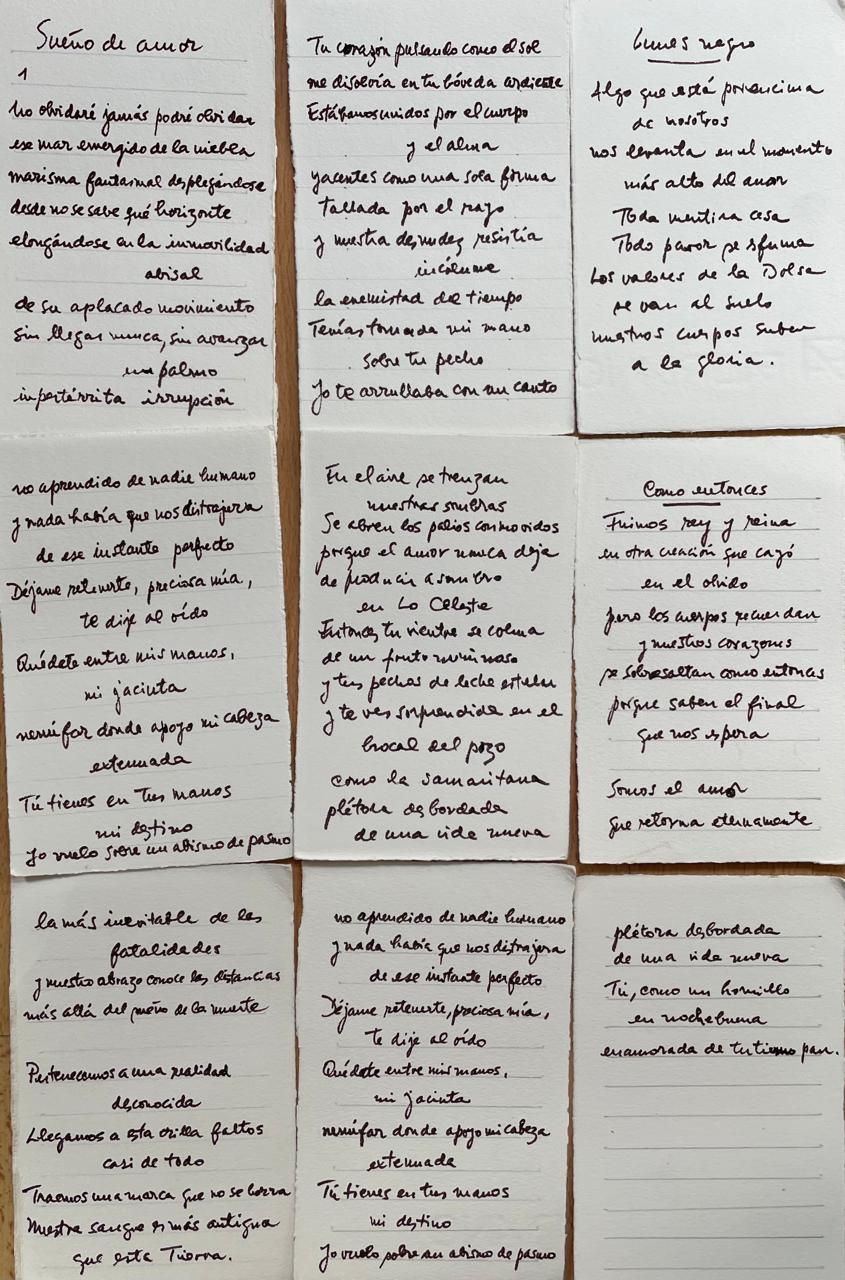 Sueño de amor
1
No olvidaré jamás podré olvidar
ese mar emergido de la niebla
marisma fantasmal desplegándose
desde no se sabe qué horizonte
elongándose en la inmovilidad
abisal
de su aplacado movimiento
sin llegar nunca, sin avanzar
un palmo
impertérrita irrupción
Tu corazón pulsando como el sol
me disolvía en tu bóveda ardiente
Estábamos unidos por el cuerpo
y el alma
yacentes como una sola forma
tallada por el rayo
y nuestra desnudez resistía
incólume
la enemistad del tiempo
Tenías tomada mi mano
sobre tu pecho
Yo te arrullaba con un canto
Lunes negro
Algo que está por encima
de nosotros
nos levanta en el momento
más alto del amor
Toda mentira cesa
Todo pavor se esfuma
Los valores de la Bolsa
se van al suelo
nuestros cuerpos suben
a la gloria.
no aprendido de nadie humano
y nada había que nos distrajera
de ese instante perfecto
Déjame retenerte, preciosa mía,
te dije al oído
Quédate entre mis manos,
mi jacinta
nenúfar donde apoyo mi cabeza
extenuada
Tú tienes en tus manos
mi destino
Yo vuelo sobre un abismo de pasmo
En el aire se trenzan
nuestras sombras
Se abren los palios conmovidos
porque el amor nunca deja
de producir asombro
en Lo Celeste
Entonces tu vientre se colma
de un fruto numinoso
y tus pechos de leche estelar
y te ves sorprendida en el
brocal del pozo
como la samaritana
plétora desbordada
de una vida nueva
Como entonces
Fuimos rey y reina
en otra creación que cayó
en el olvido
pero los cuerpos recuerdan
y nuestros corazones
se sobresaltan como entonces
porque saben el final
que nos espera
Somos el amor
que retorna eternamente
la más inevitable de las
fatalidades
y nuestro abrazo conoce las distancias
más allá del sueño de la muerte
Pertenecemos a una realidad
desconocida
Llegamos a esta orilla faltos
casi de todo
Traemos una marca que no se borra
Nuestra sangre es más antigua
que esta Tierra.
no aprendido de nadie humano
y nada había que nos distrajera
de ese instante perfecto
Déjame retenerte, preciosa mía,
te dije al oído
Quédate entre mis manos,
mi jacinta
nenúfar donde apoyo mi cabeza
extenuada
Tú tienes en tus manos
mi destino
Yo vuelo sobre un abismo de pasmo
plétora desbordada
de una vida nueva
Tú, como un hornillo
en nochebuena
enamorada de tu tierno pan.